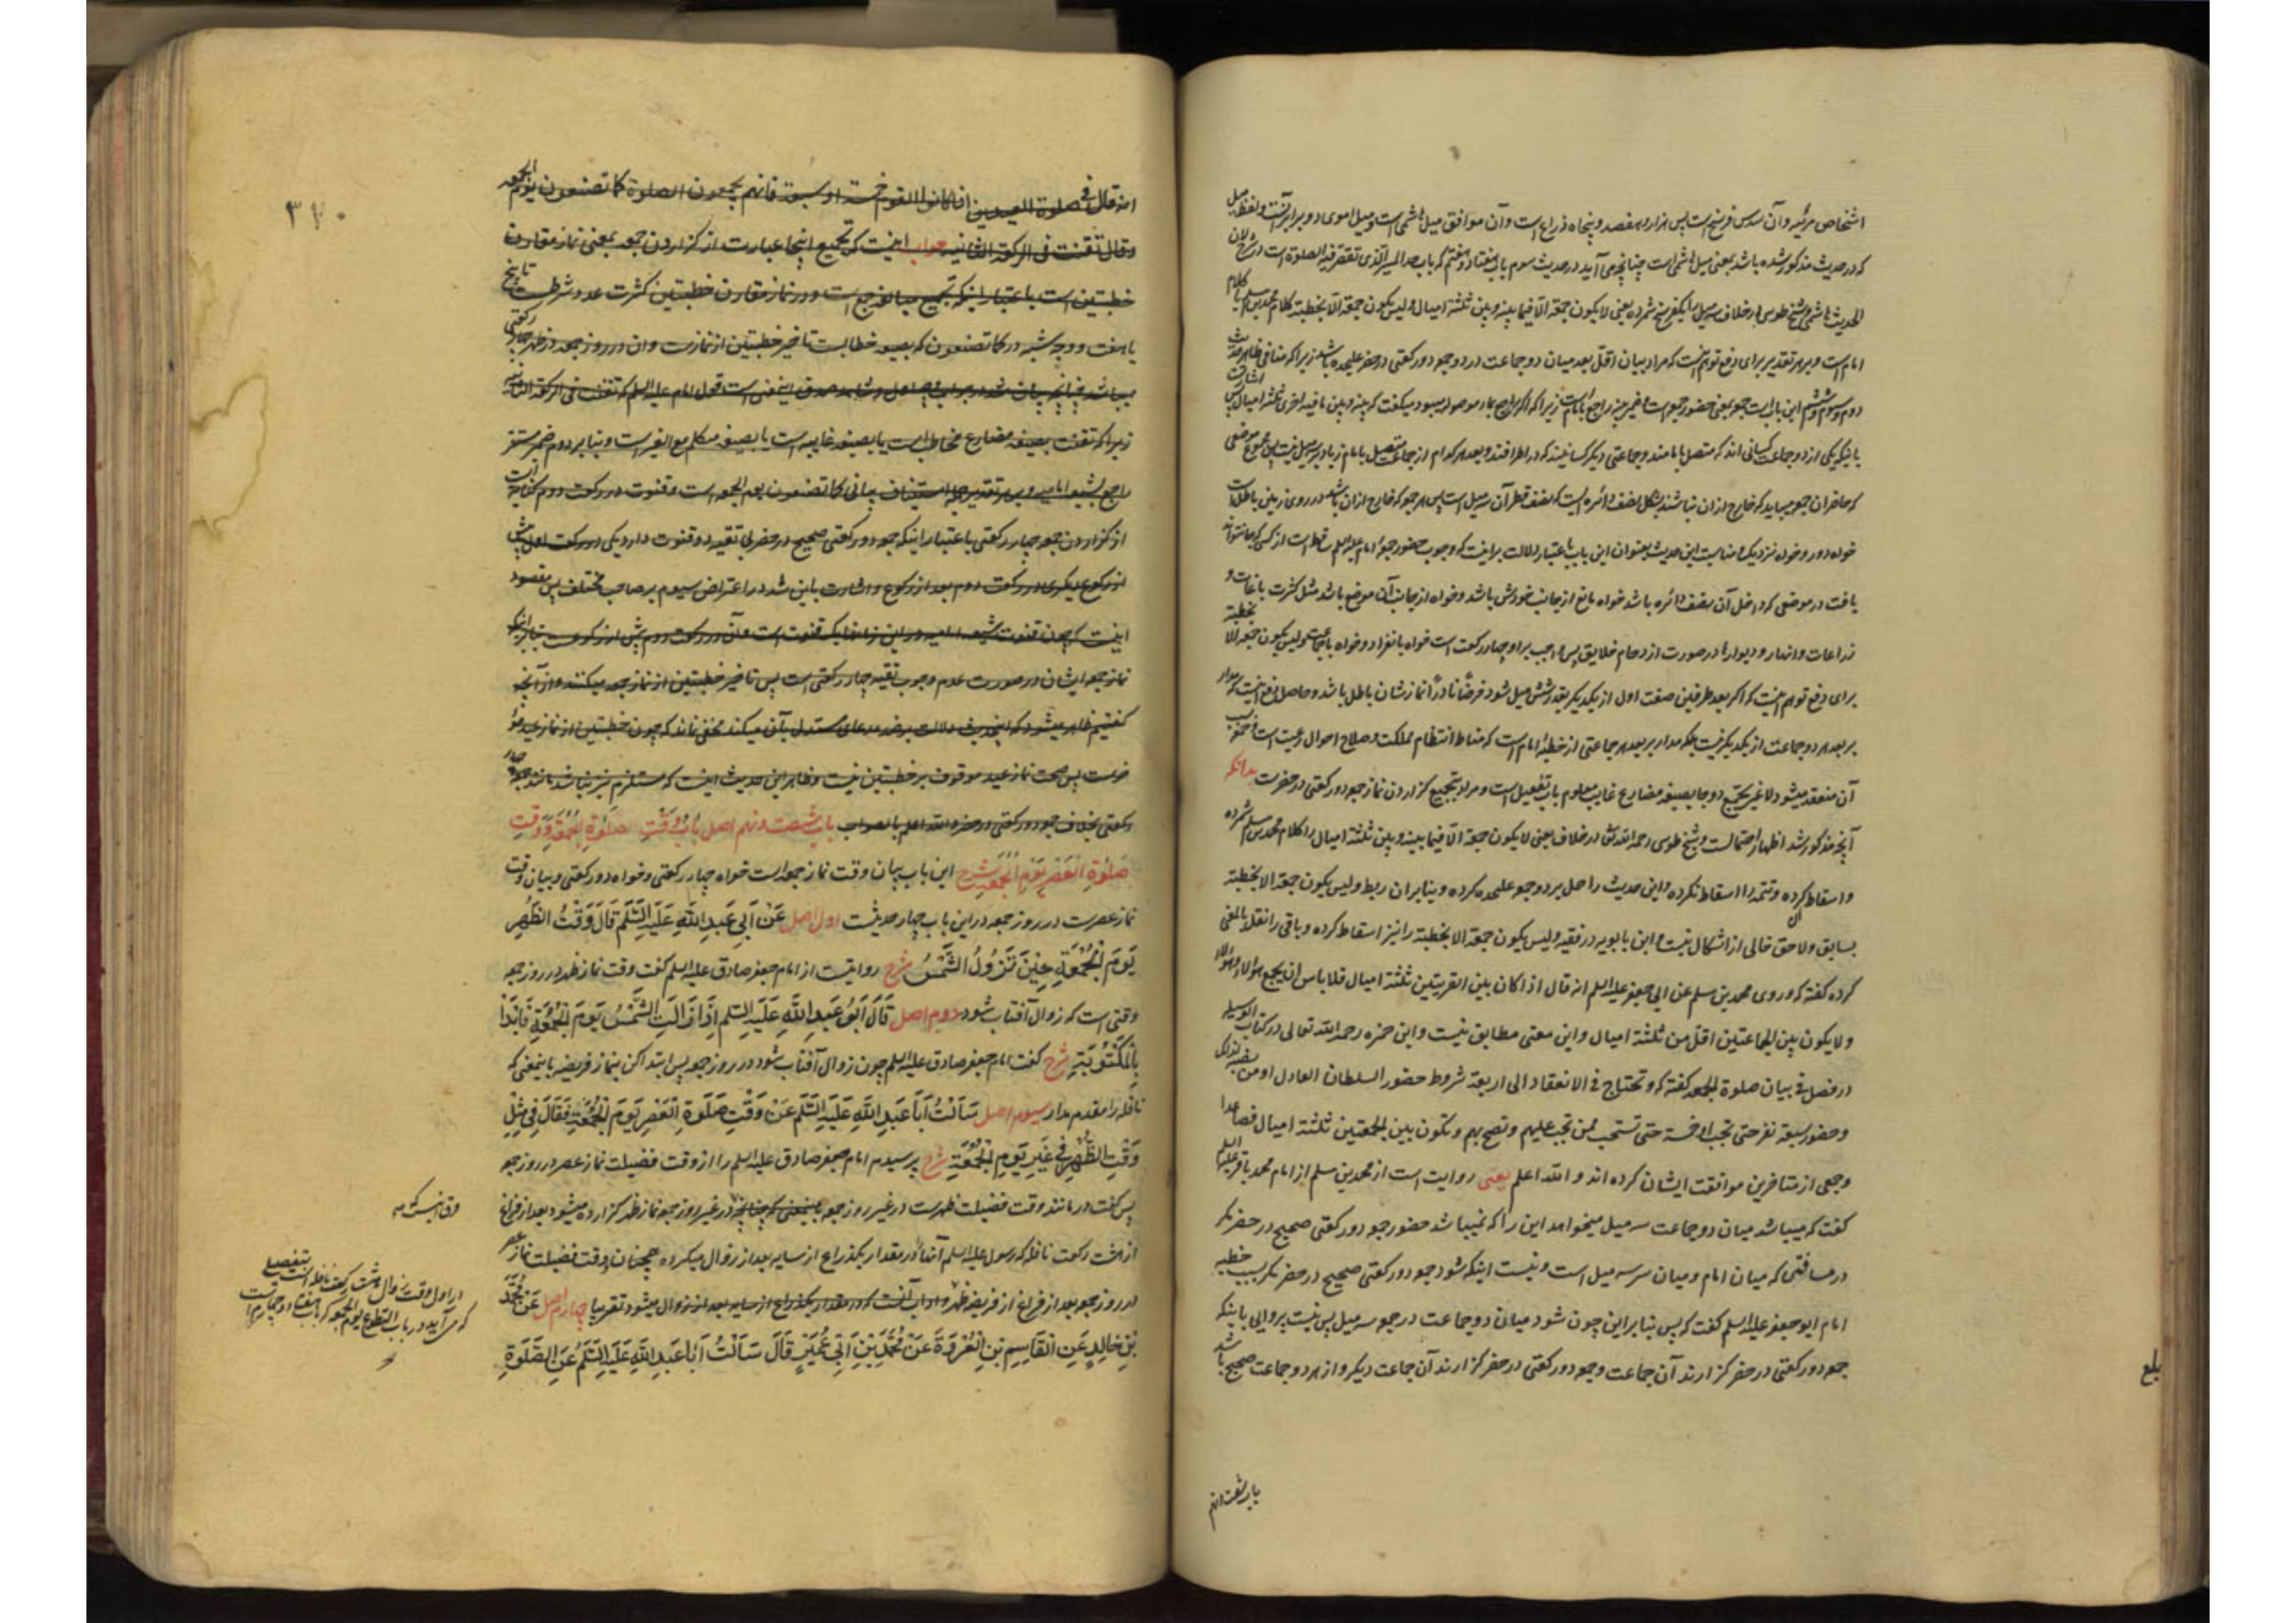 اشخاص مرئیه وآن سدس فرسخ است پس هزار و هفصد و پنجاه ذراع است وآن موافق میل هاشمی است ومیل اموی او و برابر آنست ولفظ میل
که در حدیث مذکور شده باشد بمعنی میل هاشمی است چنانچه می آید در حدیث سوم باب هفتاد وهفتم که باب حد المسیر الذی تقصر فیه الصلوة است در شرح لان
الحدیث هاشمی وشیخ طوسی در خلاف سه میل را یکفرسخ شمرده یعنی لا یکون جمعة الا فیما بینه وبین ثلثة امیال ولیس یکون جمعة الا بخطبة کلام محمد بن مسلم یا کلام
امام است و بر هر تقدیر برای دفع توهم نیست که مراد بیان اقل بعد میان دو جماعت در دو جمعه دو رکعتی در حضر علیحده باشد زیرا که منافی ظاهر حدیث
دوم وسوم وششم این باب است جمعه بمعنی حضور جمعه است وضمیر بینه راجع بامام است زیرا که اگر راجع بماء موصوله میبود میگفت که بینه وبین ناحیه اخری ثلثة امیال پس اشارت
یا اینکه یکی از دو جماعت کسانی اند که متصل بامامند وجماعتی دیگر کسانیند که در اطرافند وبعد هر کدام از جماعت متصل بامام زیاد بر سه میل نیست پس مجموع موضعی
که حاضران جمعه میباید که خارج از ان نباشند بشکل نصف دائره ایست که نصف قطر آن سه میل است پس هر جمعه که خارج از ان باشد در روی زمین باطل است
خواه دور وخواه نزدیک ومناسبت این حدیث بعنوان این باب باعتبار دلالت بر اینست که وجوب حضور جمعه امام علیه السلم ساقط است از کسی که جا نتواند
یافت در موضعی که داخل آن نصف دائره باشد خواه مانع از جانب خودش باشد وخواه از جانب آن موضع باشد مثل کثرت باغات و
زراعات وانهار ودیوارها در صورت ازدحام خلایق پس واجب بر او چهار رکعت است خواه بانفراد وخواه با جماعت ولیس یکون جمعة الا بخطبة
برای دفع توهم اینست که اگر بعد طرفین صفت اول از یکدیگر بقدر شش میل شود فرضا نادرا نمازشان باطل باشد وحاصل دفع اینست که مدار
بر بعد هر دو جماعت از یکدیگر نیست بلکه مدار بر بعد هر جماعتی از خطبه امام است که مناط انتظام مملکت وصلاح احوال رعیت است وجمعه بسبب
آن منعقد میشود لا غیر یجمع دو جا بصیغه مضارع غایب معلوم باب تفعیل است ومراد بتجمیع گزاردن نماز جمعه دو رکعتی در حضرست بدانکه
آنچه مذکور شد اظهار احتمالست وشیخ طوسی رحمه الله تعالی در خلاف یعنی لا یکون جمعة الا فیما بینه وبین ثلثة امیال را کلام محمد بن مسلم شمرده
واسقاط کرده وتتمه را اسقاط نکرده واین حدیث را حمل بر دو جمعه علیحده کرده وبنابر ان ربط ولیس یکون جمعة الا بخطبة
بسابق ولاحق خالی از اشکال نیست وابن بابویه در فقیه ولیس یکون جمعة الا بخطبة را نیز اسقاط کرده وباقی را نقل بالمعنی
کرده گفته که وروی محمد بن مسلم عن ابی جعفر علیه السلم انه قال اذا کان بین القریتین ثلثة امیال فلا باس ان یجمع هؤلاء وهؤلاء
ولا یکون بین الجماعتین اقل من ثلثة امیال واین معنی مطابق نیست وابن حمزه رحمه الله تعالی در کتاب الوسیله
در فصل فی بیان صلوة الجمعه گفته که وتحتاج فی الانعقاد الی اربعة شروط حضور السلطان العادل او من نصبه لذلک
وحضور سبعة نفر حتی تجب او خمسة حتی تستحب لمن تجب علیهم وتصح بهم وتکون بین الجمعتین ثلثة امیال فصاعدا
وجمعی از متاخرین موافقت ایشان کرده اند و الله اعلم یعنی روایت است از محمد بن مسلم از امام محمد باقر علیه السلم
گفت که میباشد میان دو جماعت سه میل میخواهد این را که نمیباشد حضور جمعه دو رکعتی صحیح در حضر مگر
در مسافتی که میان امام ومیان سر سه میل است ونیست اینکه شود جمعه دو رکعتی صحیح در حضر مگر بسبب خطبه
امام ابو جعفر علیه السلم گفت که پس بنابر این چون شود میان دو جماعت در جمعه سه میل پس نیست پروایی با اینکه
جمعه دو رکعتی در حضر گزارند آن جماعت وجمعه دو رکعتی در حضر گزارند آن جماعت دیگر واز هر دو جماعت صحیح باشد
بلغ
باب شصت ونهم
۳۷۰
انه قال فی صلوة العیدین اذا کانوا القوم خمسة او سبعة فانهم یجمعون الصلوة کما تصنعون یوم الجمعه
وقال تقنت فی الرکعة الثانیه جواب اینست که تجمیع اینجا عبارت از گزاردن جمعه بمعنی نماز مقارن
خطبتین است باعتبار اینکه تجمیع مبالغه جمع است ودر نماز مقارن خطبتین کثرت عدد شرطست تا پنج
یا هفت ووجه شبه در کما تصنعون که بصیغه خطابست تاخیر خطبتین از نمازست وان در روز جمعه در ظهر چهار رکعتی
میباشد چنانچه بیان شد در جواب وجه اول وشاهد صدق اینمعنی است قول امام علیه السلم که تقنت فی الرکعة الثانیه
زیرا که تقنت بصیغه مضارع مخاطب است یا بصیغه غایبه است یا بصیغه متکلم مع الغیر است وبنابر دوم ضمیر مستتر
راجع بشیعه امامیه وبر هر تقدیر جمله استیناف بیانی کما تصنعون یوم الجمعه است وقنوت در رکعت دوم کنایت است
از گزاردن جمعه چهار رکعتی باعتبار اینکه جمعه دو رکعتی صحیح در حضر بی تقیه دو قنوت دارد یکی در رکعت اول پیش
از رکوع دیگری در رکعت دوم بعد از رکوع واشارت باین شد در اعتراض سیوم بر صاحب مختلف پس مقصود
اینست که چون قنوت شیعه امامیه در این زمانها یک قنوت است وآن در رکعت دوم پیش از رکوعست بنابر اینکه
نماز جمعه ایشان در صورت عدم وجوب تقیه چهار رکعتی است پس تاخیر خطبتین از نماز جمعه میکنند واز آنچه
گفتیم ظاهر میشود که اینحدیث دلالت بر ضد مدعای مستدل بآن میکند مخفی نماند که چون خطبتین از نماز عید مؤ
خرست پس صحت نماز عید موقوف بر خطبتین نیست وظاهر این حدیث اینست که مستلزم نیز نباشد مانند جمعه چهار
رکعتی بخلاف جمعه دو رکعتی در حضر والله اعلم بالصواب باب شصت ونهم اصل باب وقت صلوة الجمعة ووقت
صلوة العصر یوم الجمعة شرح این باب بیان وقت نماز جمعه است خواه چهار رکعتی وخواه دو رکعتی وبیان وقت
نماز عصرست در روز جمعه در این باب چهار حدیثست اول اصل عَنْ اَبِی عَبدِ اللّٰهِ عَلَیهِ السَّلَم قَالَ وَقْتُ الظُّهرِ
یَومَ الْجُمُعَةِ حِیْنَ تَزُولُ الشَّمْسُ شرح روایتست از امام جعفر صادق علیه السلم گفت وقت نماز ظهر در روز جمعه
وقتی است که زوال آفتاب شود دوم اصل قَالَ اَبُو عَبدِ اللّٰهِ عَلَیهِ السَّلم اِذَا زَالَتِ الشَّمْسُ یَومَ الْجُمُعَةِ فَابْدَأْ
بِالْمَکْتُوبَةِ شرح گفت امام جعفر صادق علیه السلم چون زوال آفتاب شود در روز جمعه پس ابتدا کن بنماز فریضه باینمعنی که
نافله را مقدم مدار سیوم اصل سَاَلْتُ اَبَا عَبدِ اللّٰهِ عَلَیهِ السَّلَم عَنْ وَقْتِ صَلٰوةِ الْعَصْرِ یَومَ الْجُمُعَةِ فَقَالَ فِی مِثْلِ
وَقْتِ الظُّهْرِ فِی غَیرِ یَومِ الْجُمُعَةِ شرح پرسیدم امام جعفر صادق علیه السلم را از وقت فضیلت نماز عصر در روز جمعه
پس گفت در مانند وقت فضیلت ظهرست در غیر روز جمعه باینمعنی که چنانچه در غیر روز جمعه نماز ظهر گزارده میشود بعد از فراغ
از هشت رکعت نافله که رسول علیه السلم آنها را در مقدار یکذراع از سایه بعد از زوال میکرده همچنان وقت فضیلت نماز عصر
در روز جمعه بعد از فراغ از فریضه ظهر واداب آنست که در مقدار یکذراع از سایه بعد از زوال میشود تقریبا چهارم اصل عَنْ مُحَمَّدِ
بْنِ خَالِدٍ عَنِ الْقَاسِمِ بْنِ عُرْوَةَ عَنْ مُحَمَّدِ بْنِ اَبِی عُمَیرٍ قَالَ سَاَلْتُ اَبَا عَبدِ اللّٰهِ عَلَیهِ السَّلَم عَنِ الصَّلٰوةِ
در اول وقت زوال هشت رکعت نافله است بتفصیلی
که می آید در باب التطوع یوم الجمعه که باب هفتاد وچهارم است